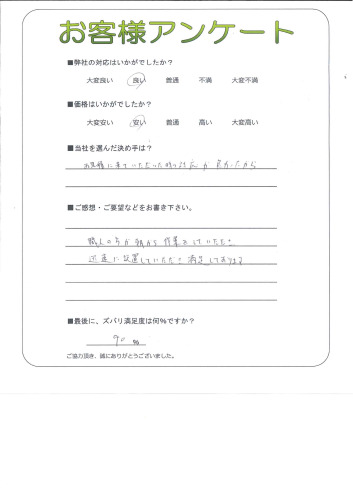 お客様アンケート
■弊社の対応はいかがでしたか?
大変良い 良い 普通 不満 大変不満
■価格はいかがでしたか?
大変安い 安い 普通 高い 大変高い
■当社を選んだ決め手は?
お見積に来ていただいた時の対応が良かったから
■ご感想・ご要望などをお書き下さい。
職人の方が朝から作業をしていただき
迅速に設置していただき満足しております
■最後に、ズバリ満足度は何%ですか?
90 %
ご協力頂き、誠にありがとうございました。